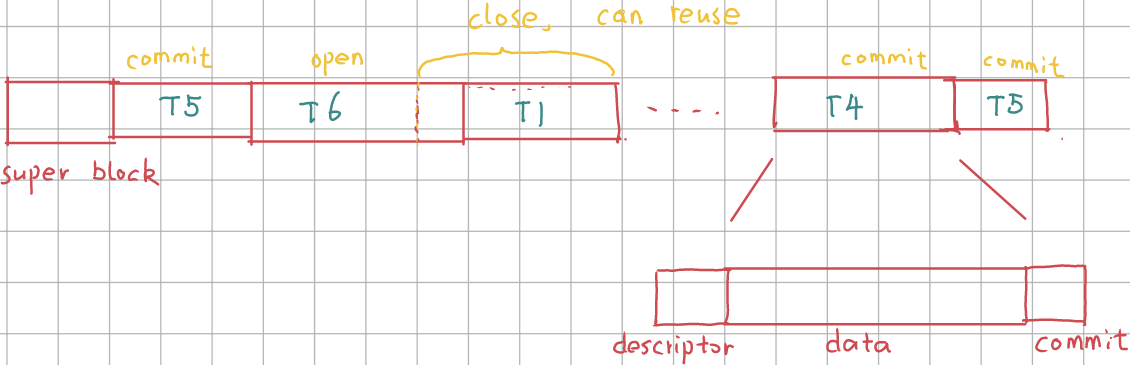 close, can reuse
commit open commit commit
T5 T6 T1 T4 T5
super block
descriptor data commit